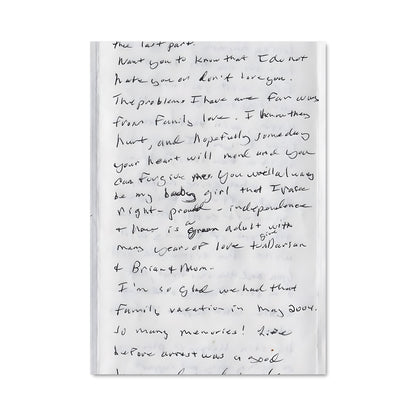 the last part.
Want you to know that I do not
hate you or don't love you.
The problems I have are far away
from family love. I know they
hurt, and hopefully someday
your heart will mend and you
can forgive me. You will always
be my baby girl that I raise
right - proud - independence
& now is a grown adult with
many year of love to give Darian
& Brian & Mom.
I'm so glad we had that
family vacation in May 2004.
so many memories! Life
before arrest was a good